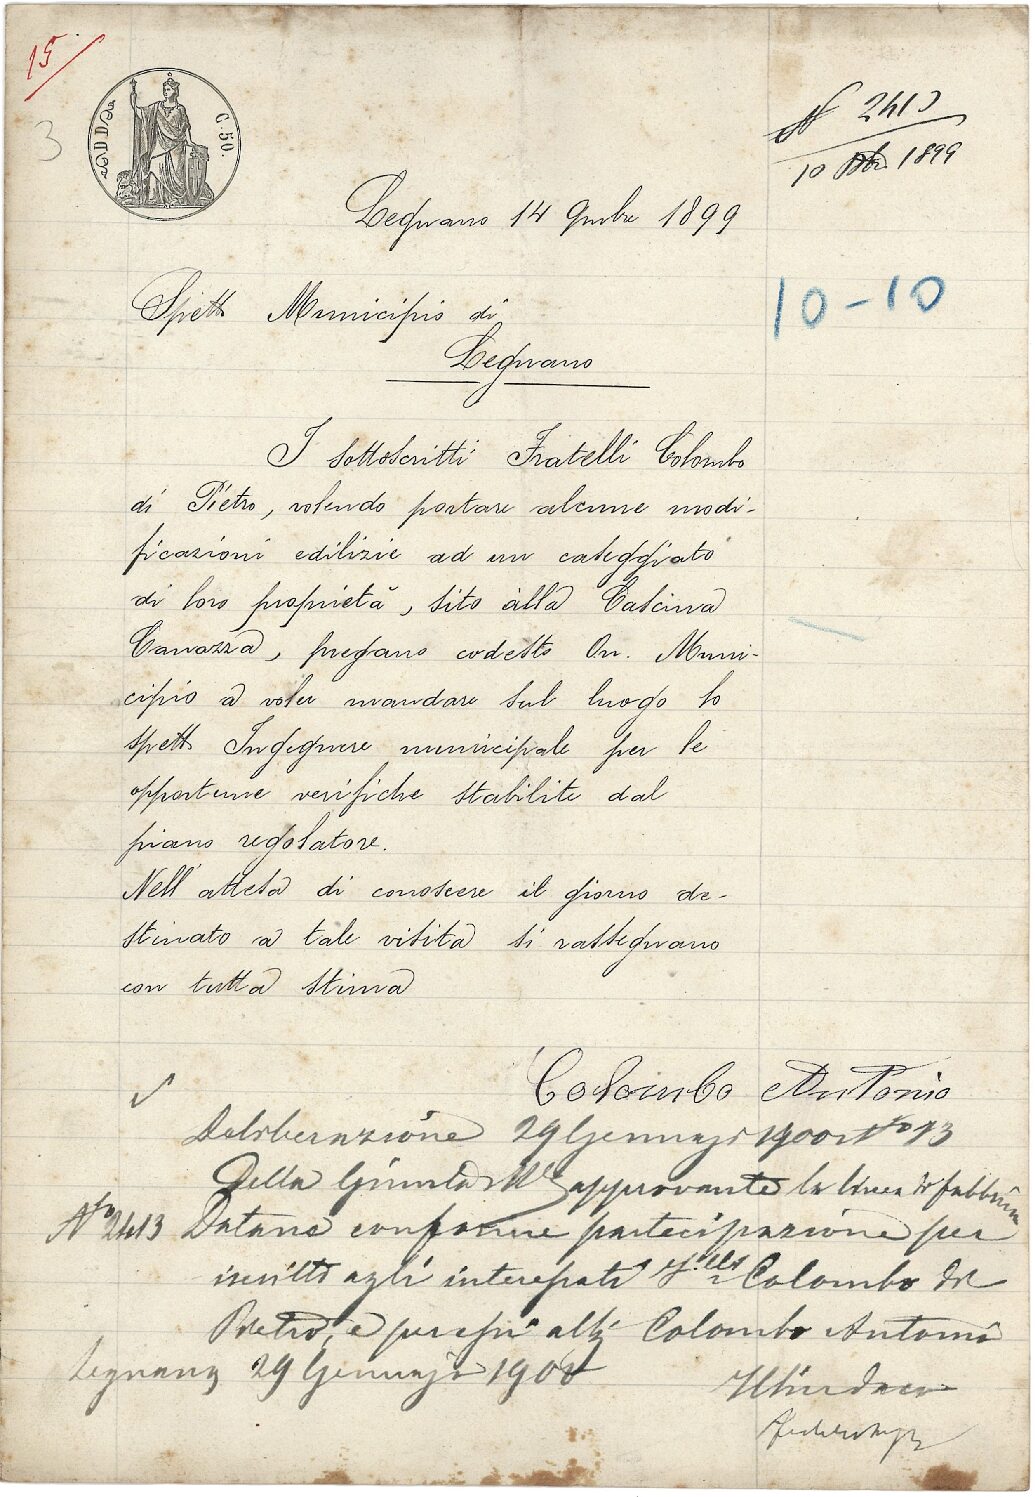 15
3
C. 50.
N 2413
10 Xbre 1899
Legnano 14 9mbre 1899
10-10
Spett Municipio di
Legnano
I sottoscritti Fratelli Colombo
di Pietro, volendo portare alcune modi-
ficazioni edilizie ad un caseggiato
di loro proprietà, sito alla Cascina
Canazza, pregano codesto On. Muni-
cipio a voler mandare sul luogo lo
spett Ingegnere municipale per le
opportune verifiche stabilite dal
piano regolatore.
Nell' attesa di conoscere il giorno de-
stinato a tale visita si rassegnano
con tutta stima
Colombo Antonio
Deliberazione 29 Gennajo 1900 No 13
Della Giunta Mle approvante la linea di fabbrica
No 2413 Datane conforme partecipazione per
iscritto agli interessati Colombo di
Pietro, e per essi Colombo Antonio
Legnano 29 Gennajo 1900
Il Sindaco